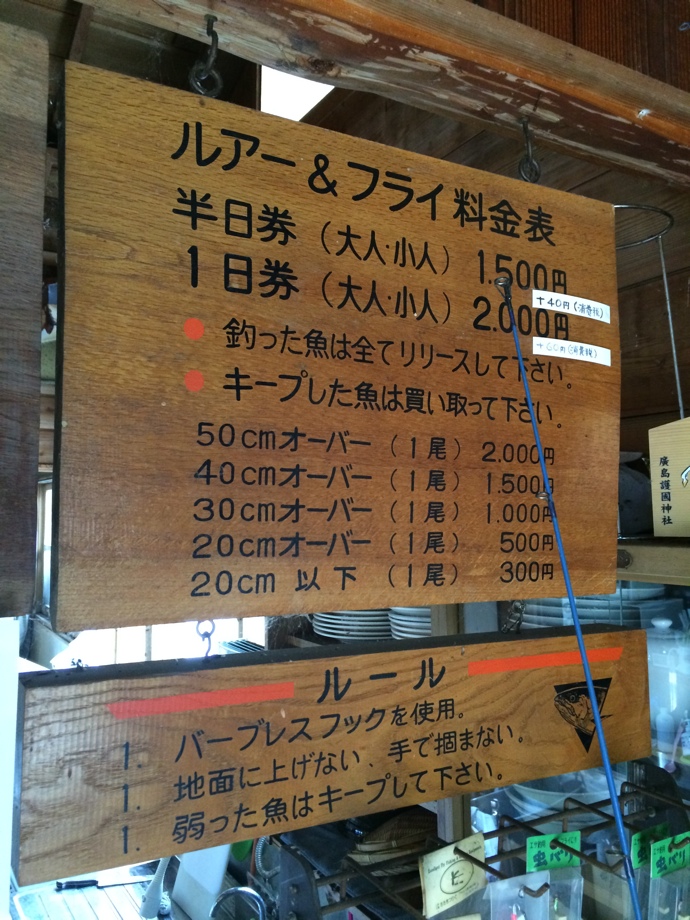 ルアー&フライ料金表
半日券(大人・小人) 1.500円
+40円(消費税)
1日券(大人・小人) 2.000円
+60円(消費税)
● 釣った魚は全てリリースして下さい。
● キープした魚は買い取って下さい。
50cmオーバー(1尾) 2.000円
40cmオーバー(1尾) 1.500円
30cmオーバー(1尾) 1.000円
20cmオーバー(1尾) 500円
20cm 以下 (1尾) 300円
ルール
1. バーブレスフックを使用。
1. 地面に上げない、手で掴まない。
1. 弱った魚はキープして下さい。
廣島護國神社
虫パリ